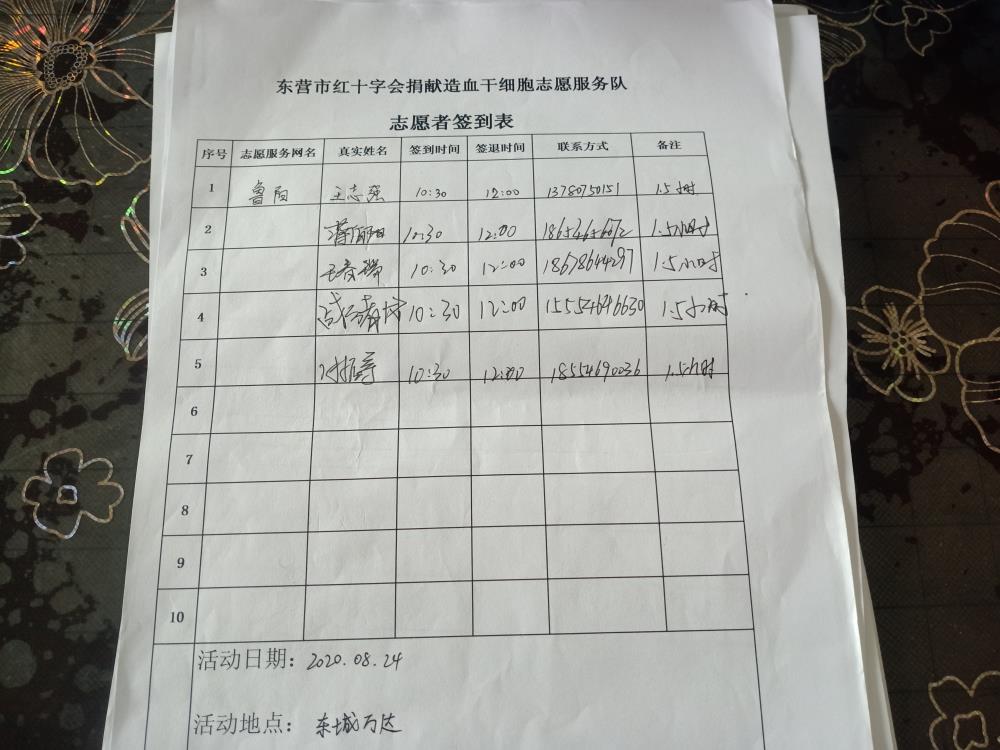 东营市红十字会捐献造血干细胞志愿服务队
志愿者签到表
序号 志愿服务网名 真实姓名 签到时间 签退时间 联系方式 备注
1 鲁阳 王志强 10:30 12:00 13780750151 1.5小时
2 10:30 12:00 1.5小时
3 王春瑞 10:30 12:00 18678644297 1.5小时
4 10:30 12:00 15554646630 1.5小时
5 10:30 12:00 18554690036 1.5小时
6
7
8
9
10
活动日期：2020.08.24
活动地点：东城万达